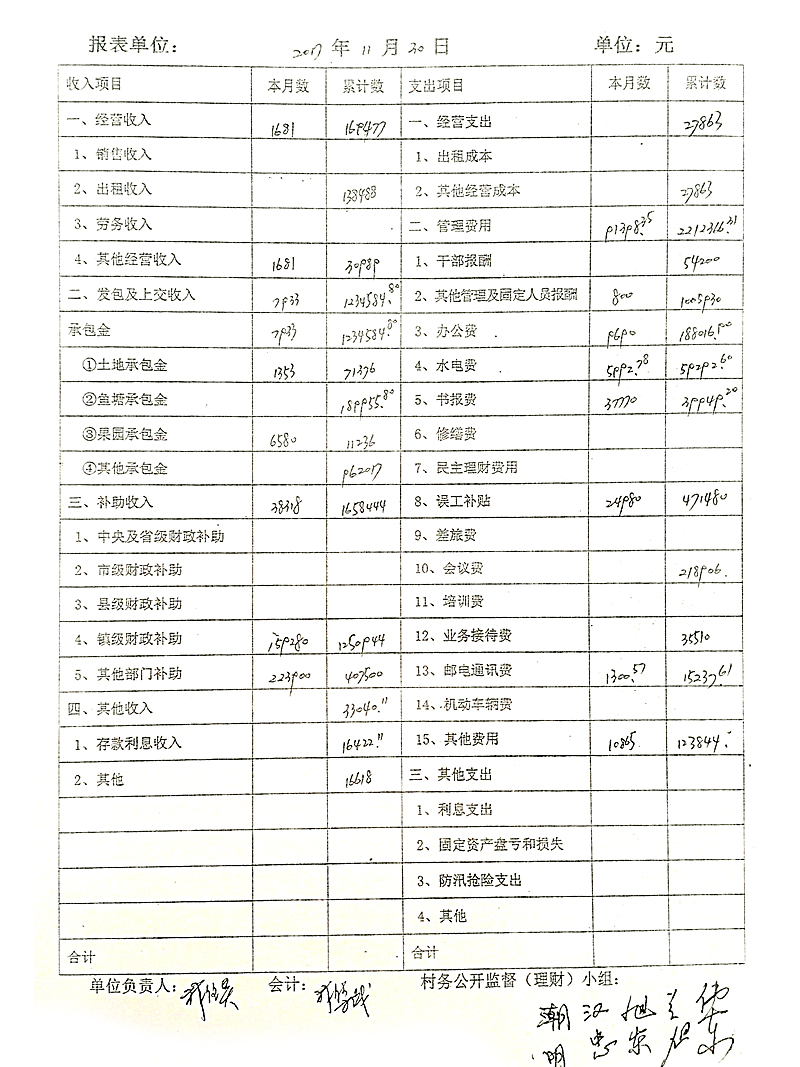 报表单位： 2017 年 11 月 30 日 单位：元
收入项目 本月数 累计数 支出项目 本月数 累计数
一、经营收入 1681 169477 一、经营支出 27863
1、销售收入 1、出租成本
2、出租收入 138488 2、其他经营成本 27863
3、劳务收入 二、管理费用 91398.35 2212316.31
4、其他经营收入 1681 30989 1、干部报酬 54200
二、发包及上交收入 7933 1234584.80 2、其他管理及固定人员报酬 800 1005930
承包金 7933 1234584.80 3、办公费 9690 188016.90
①土地承包金 1353 71376 4、水电费 5992.78 59292.60
②鱼塘承包金 189955.80 5、书报费 37770 39949.20
③果园承包金 6580 11236 6、修缮费
④其他承包金 962017 7、民主理财费用
三、补助收入 38318 1658444 8、误工补贴 24980 471480
1、中央及省级财政补助 9、差旅费
2、市级财政补助 10、会议费 218906
3、县级财政补助 11、培训费
4、镇级财政补助 159280 1250944 12、业务接待费 35510
5、其他部门补助 223900 407500 13、邮电通讯费 1300.57 15237.61
四、其他收入 33040.11 14、机动车辆费
1、存款利息收入 16422.11 15、其他费用 10865 123844
2、其他 16618 三、其他支出
1、利息支出
2、固定资产盘亏和损失
3、防汛抢险支出
4、其他
合计 合计
单位负责人： 会计： 村务公开监督（理财）小组：